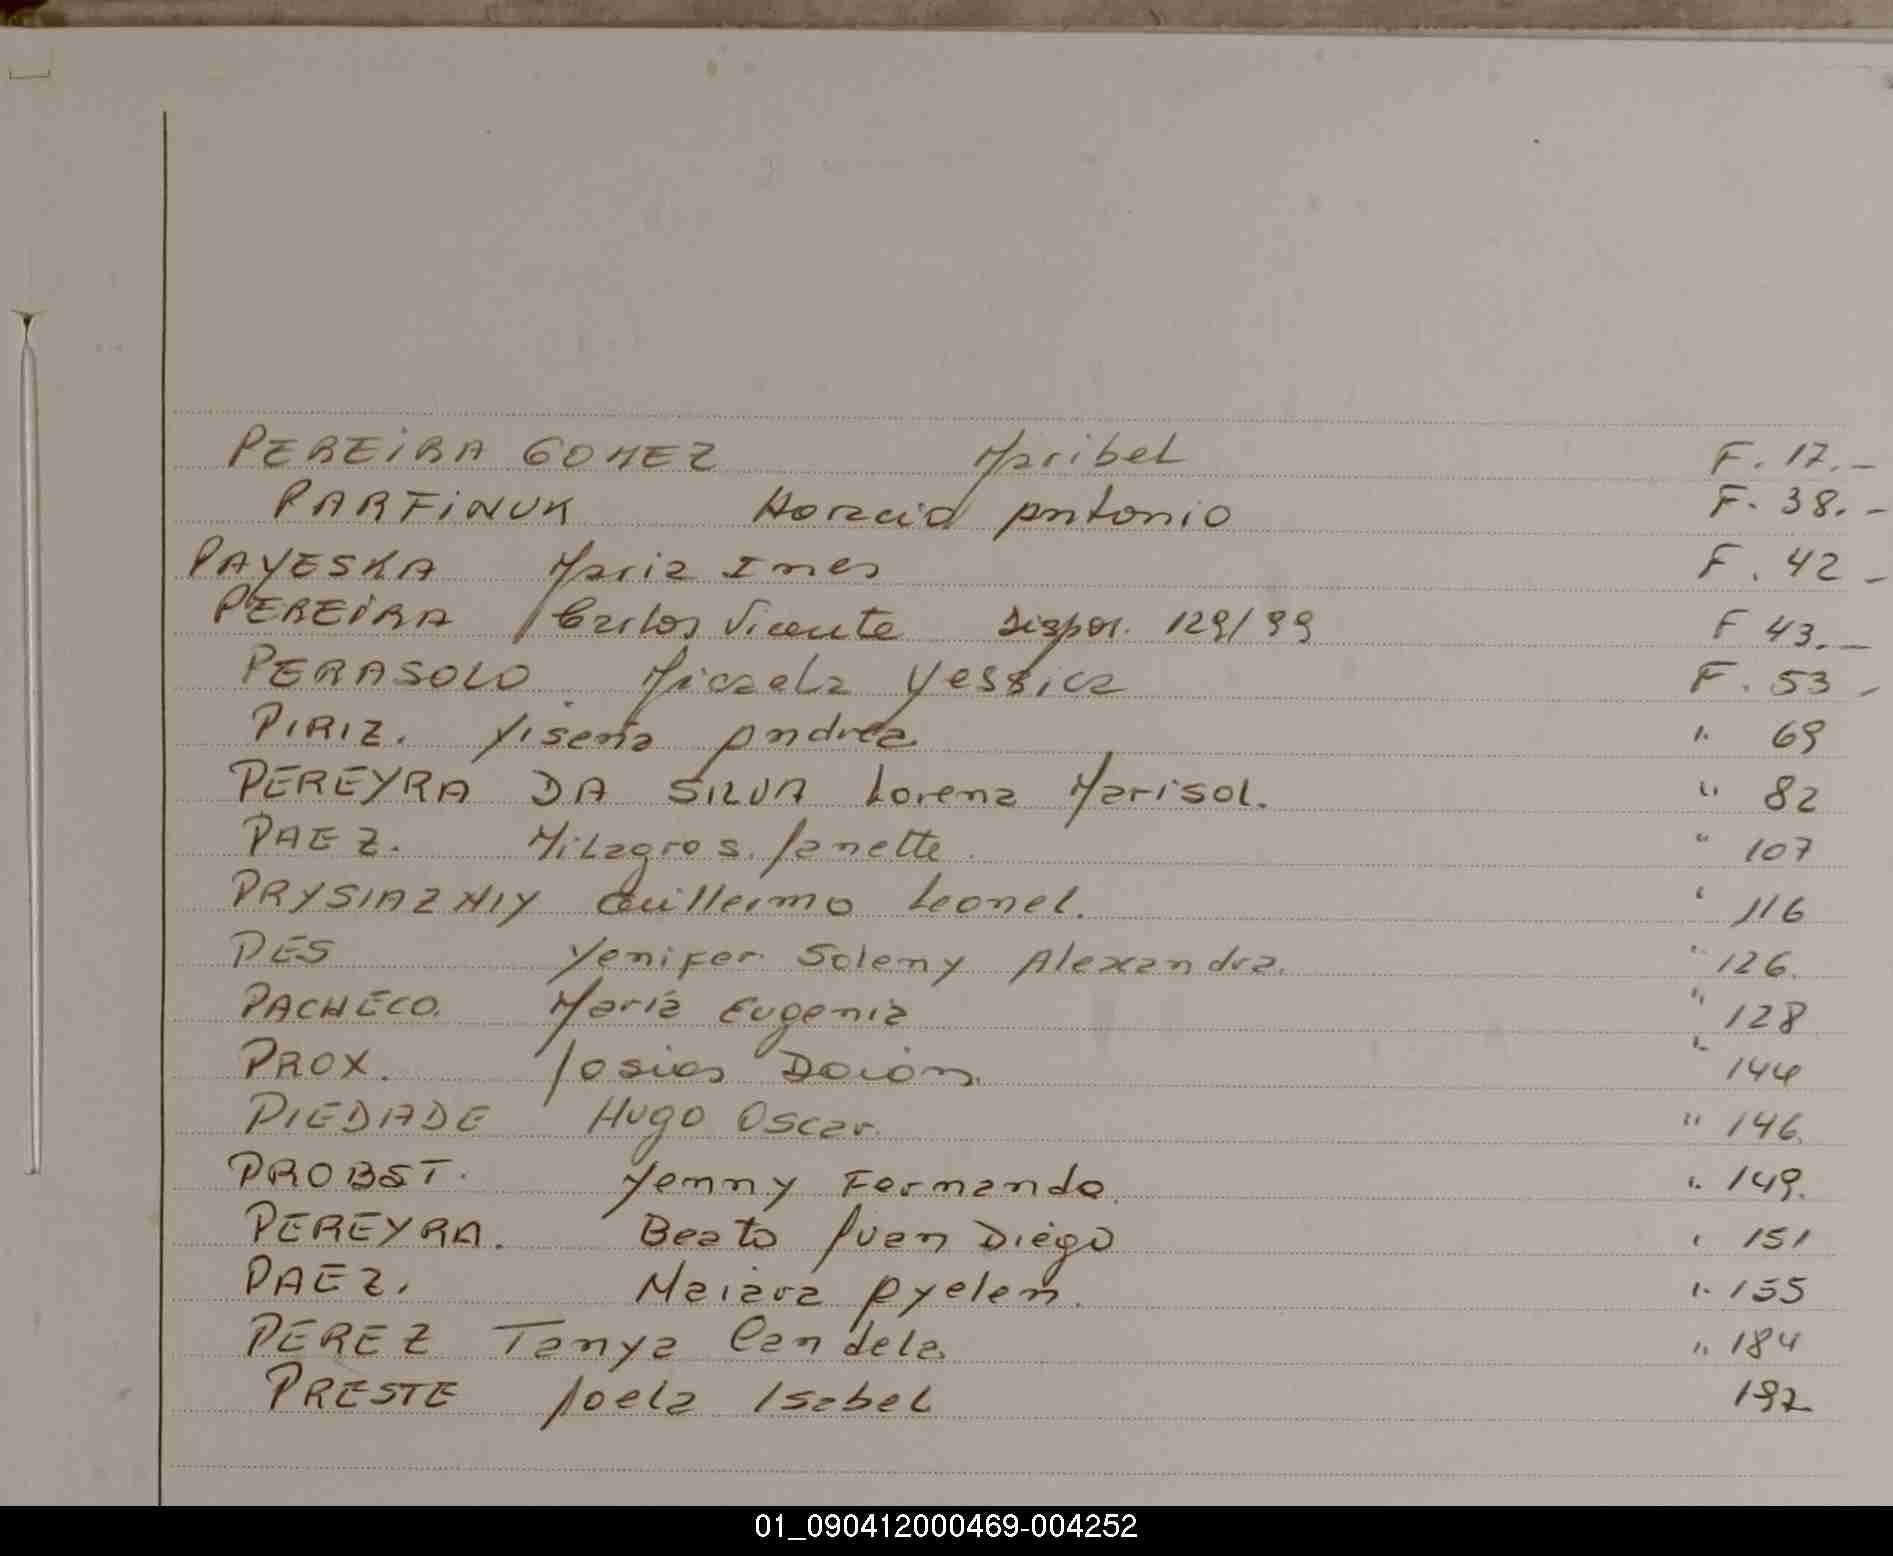 PEREIRA GOMEZ Maribel F. 17.-
PARFINUK Horacio Antonio F. 38.-
PAYESKA Maria Ines F. 42 -
PEREIRA Carlos Vicente Dispos. 129/99 F 43.-
PERASOLO Micaela Yessica F. 53 -
PIRIZ. Yisenia Andrea " 69
PEREYRA DA SILVA Lorena Marisol. " 82
PAEZ. Milagros Janette. " 107
PRYSIAZNIY Guillermo Leonel. " 116
PES Yenifer Soleny Alexandra. " 126.
PACHECO. María Eugenia " 128
PROX. Josias " 144
PIEDADE Hugo Oscar. " 146.
PROBST. Yenny Fernanda. " 149.
PEREYRA. Beato Juan Diego " 151
PAEZ. Maiara Ayelen. " 155
PEREZ Tanya Candela " 184
PRESTE Joela Isabel 192
01_090412000469-004252